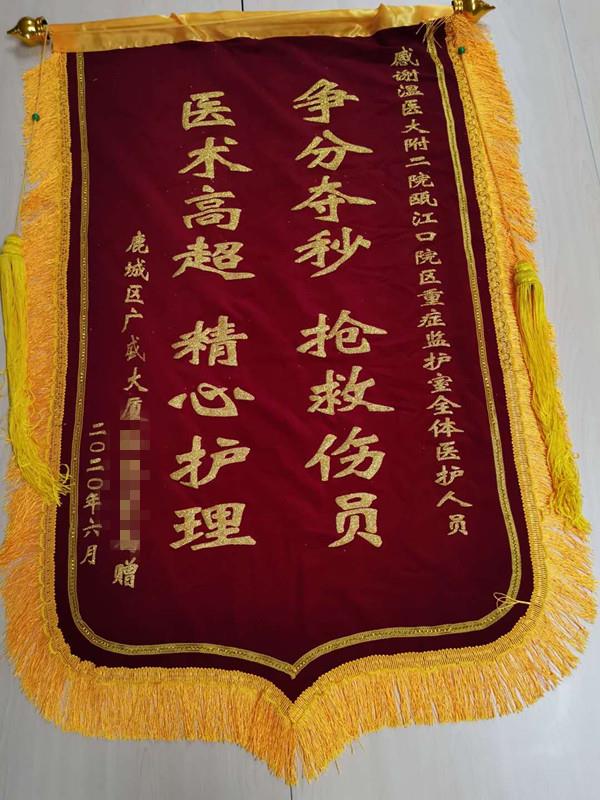 感谢温医大附二院瓯江口院区重症监护室全体医护人员
争分夺秒 抢救伤员
医术高超 精心护理
鹿城区广盛大厦 赠
二〇二〇年六月